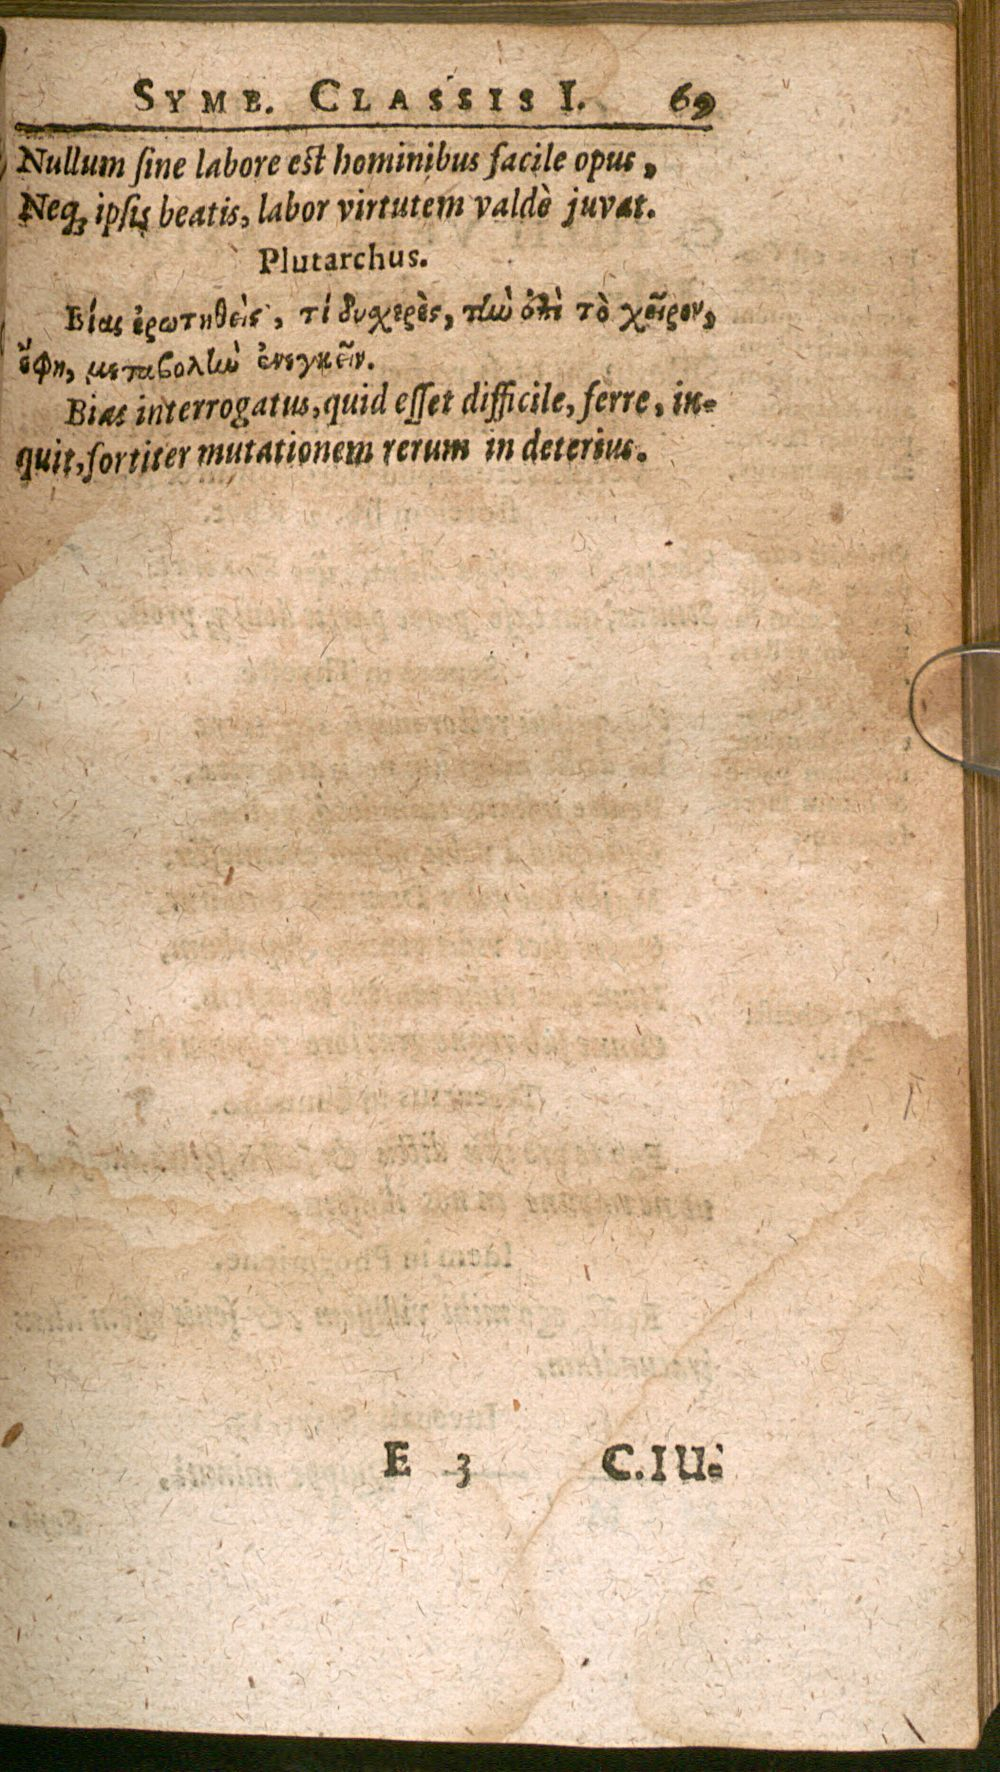 SYMB. CLASSIS I. 69
Nullum ſine labore eſt hominibus facile opus,
Neq; ipſis beatis, labor virtutem valdè juvat.
Plutarchus.
Βίας ἐρωτηθεὶς, τί δυχερὲς, τὴν ἐπὶ τὸ χεῖρον,
ἔφη, μεταβολὴν ἐνεγκεῖν.
Bias interrogatus, quid eſſet difficile, ferre, in-
quit, fortiter mutationem rerum in deterius.
E 3 C. IU-